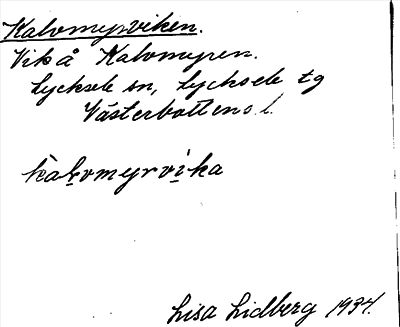 Kalvomyrviken.
Vik å Kalvomyren.
Lycksele sn, Lycksele tg
Västerbottens l.
kalvomyrvika
Lisa Lidberg 1934.